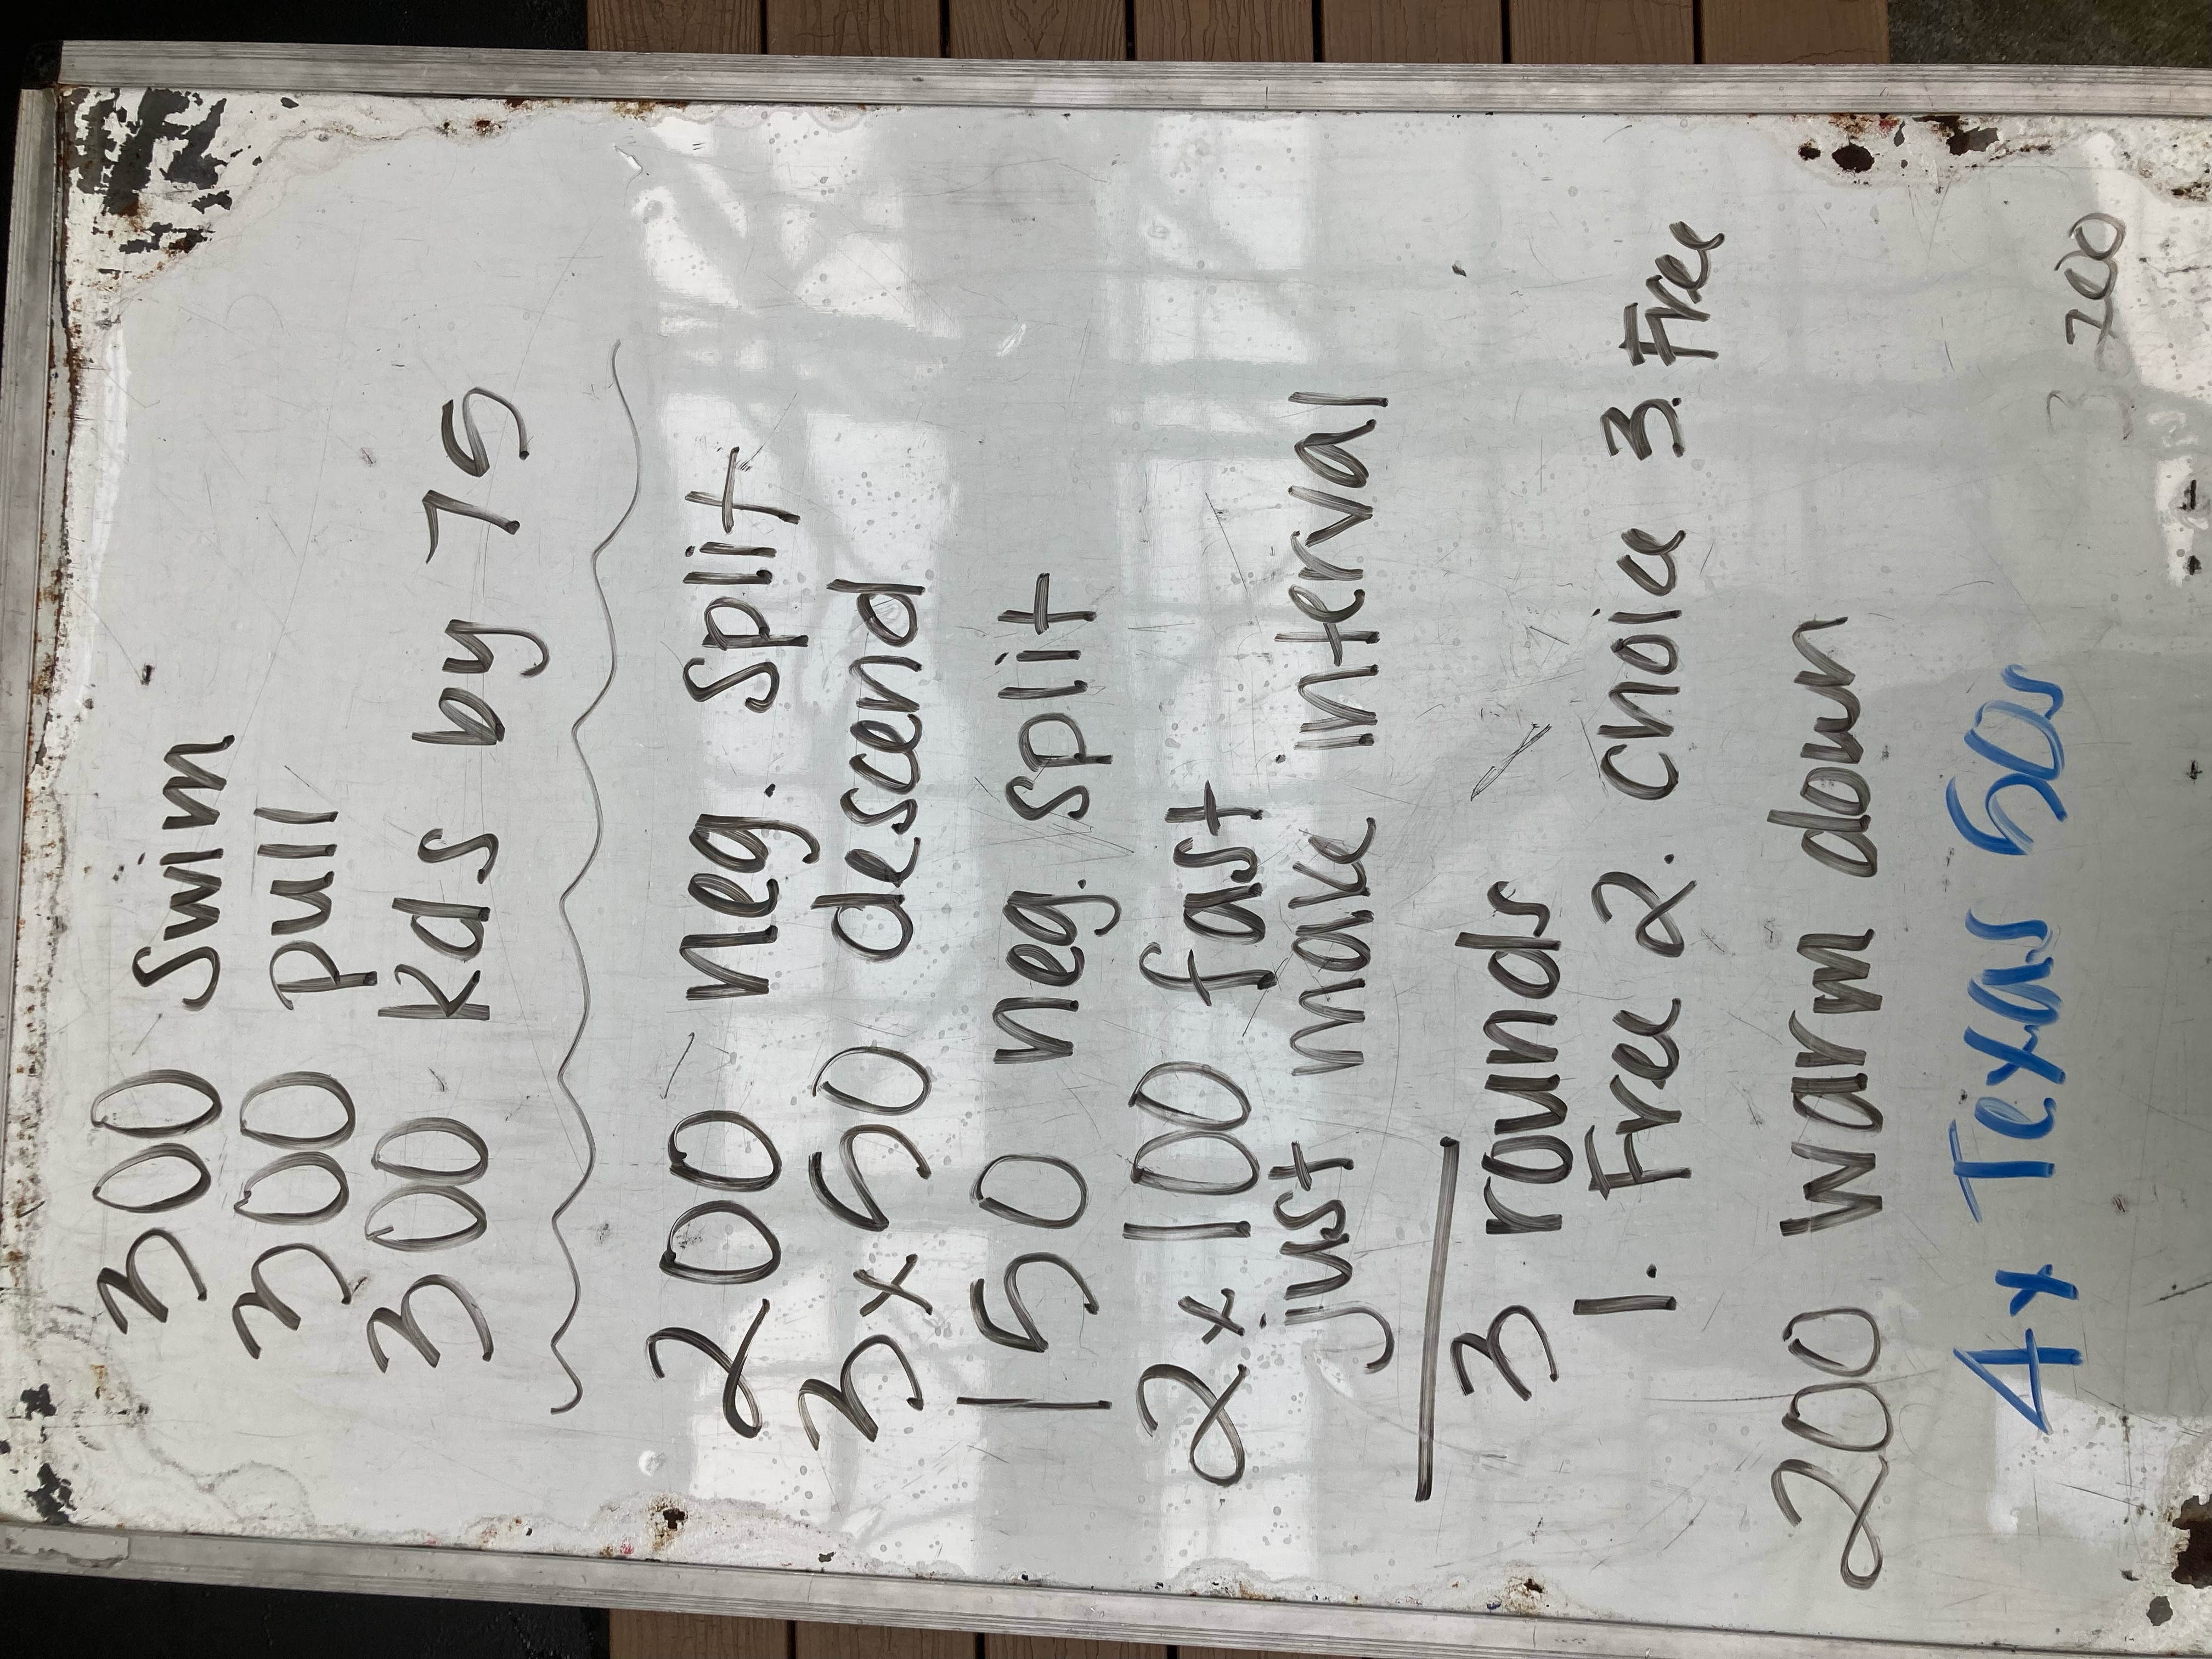 300 Swim
300 pull
300 kds by 75
200 neg. split
3x50 descend
150 neg. split
2x100 fast
just make interval
3 rounds
1. Free 2. choice 3. Free
200 warm down
4x Texas 50s
3200